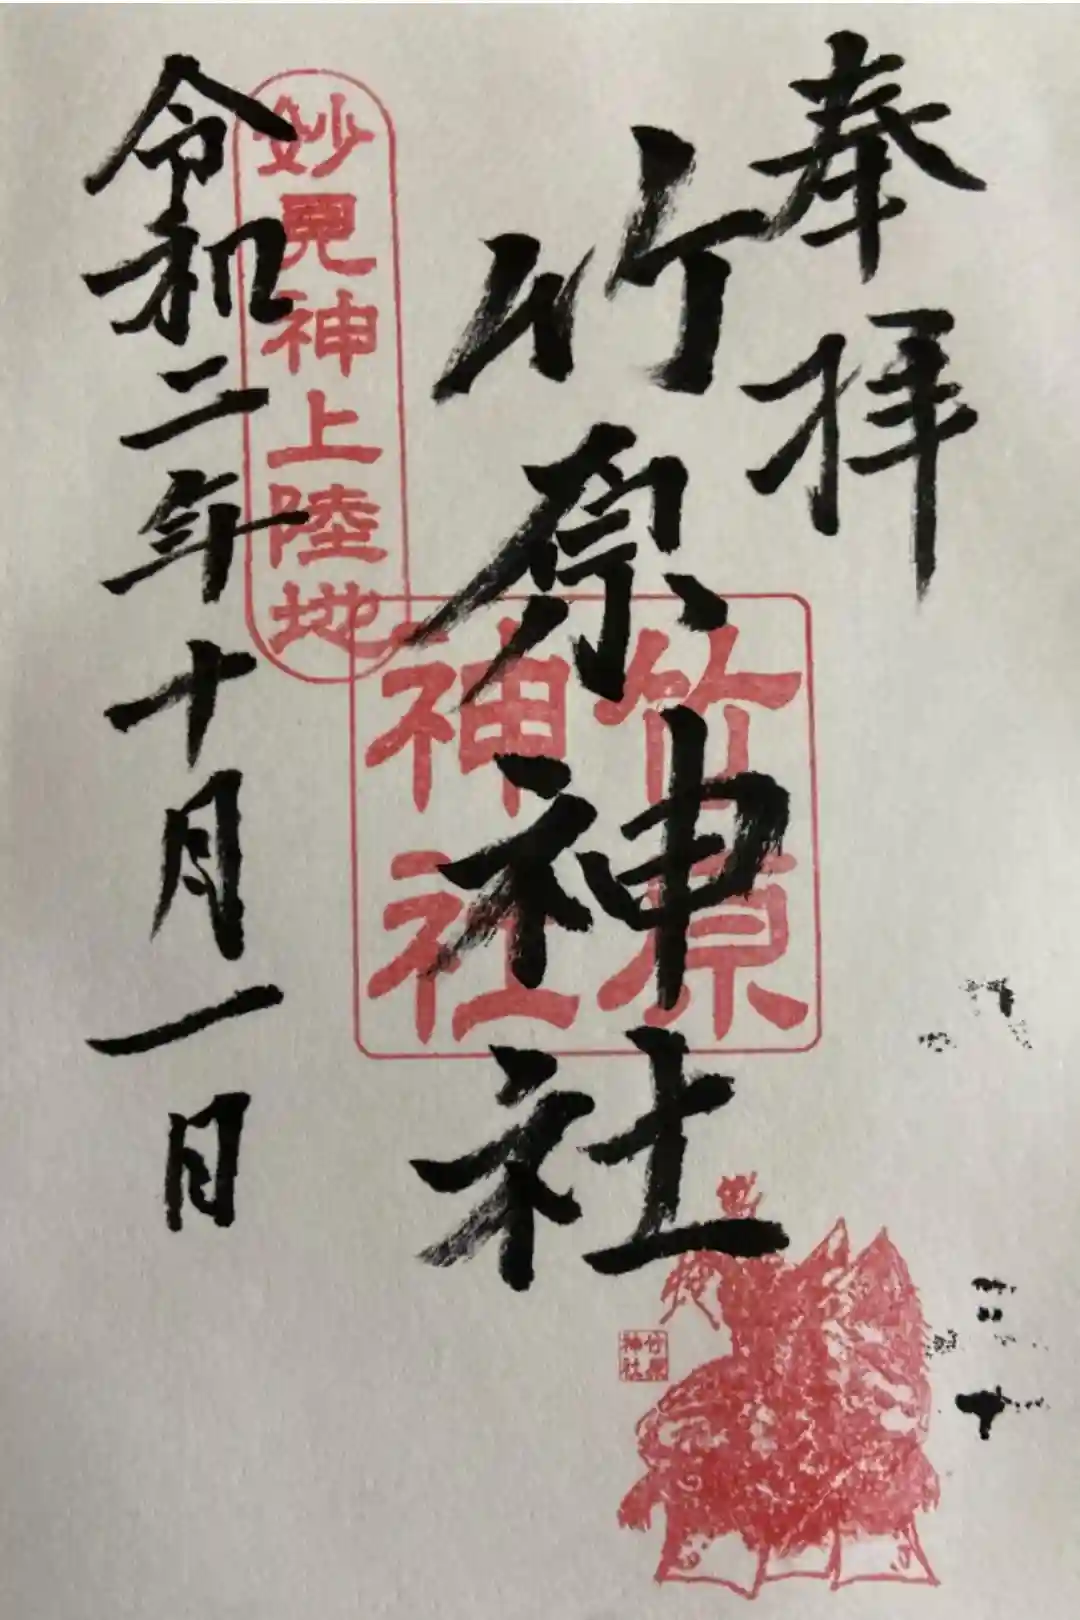 奉拝
竹原神社
竹原
神社
妙見神上陸地
令和二年十月一日
竹原
神社